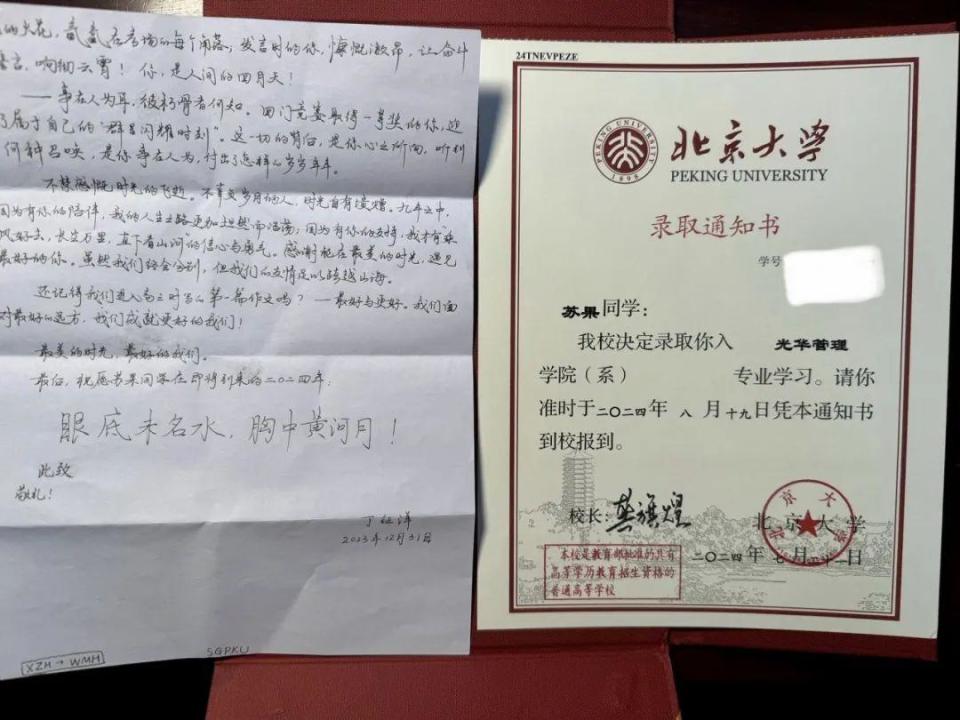 的火花，氤氲在考场的每个角落；发言时的你，慷慨激昂，让奋斗
言，响彻云霄！你，是人间的四月天！
——事在人为耳，彼朽骨者何知。四门竞赛最得一等奖的你，迎
了属于自己的"群星闪耀时刻"。这一切的背后，是你心之所向，听到
何种召唤，是你事在人为，付出了怎样的岁岁年年。
不禁感慨时光的飞逝。不辜负岁月的人，时光自有馈赠。九年之中，
因为有你的陪伴，我的人生之路更加坦然而浩荡；因为有你的支持，我才有乘
风好去，长空万里，直下看山河的信心与勇气。感谢能在最美的时光，遇见
最好的你。虽然我们终会分别，但我们的友情足以跨越山海。
还记得我们进入高三时写的第一篇作文吗？——最好与更好。我们面
对最好的远方，我们成就更好的我们！
最美的时光，最好的我们。
最后，祝愿苏果同学在即将到来的二〇二四年：
眼底未名水，胸中黄河月！
此致
敬礼！
丁 洋
2023年12月31日
XZH→WMH
SGPKU
24TNEVPEZE
PEKING UNIVERSITY
1898
北京大学
PEKING UNIVERSITY
录取通知书
学号
苏果同学：
我校决定录取你入 光华管理
学院（系） 专业学习。请你
准时于二〇二四年 八 月 十九日凭本通知书
到校报到。
校长：龚旗煌 北京大学
北京大学
二〇二四年 七 月 二日
本校是教育部批准的具有
高等学历教育招生资格的
普通高等学校